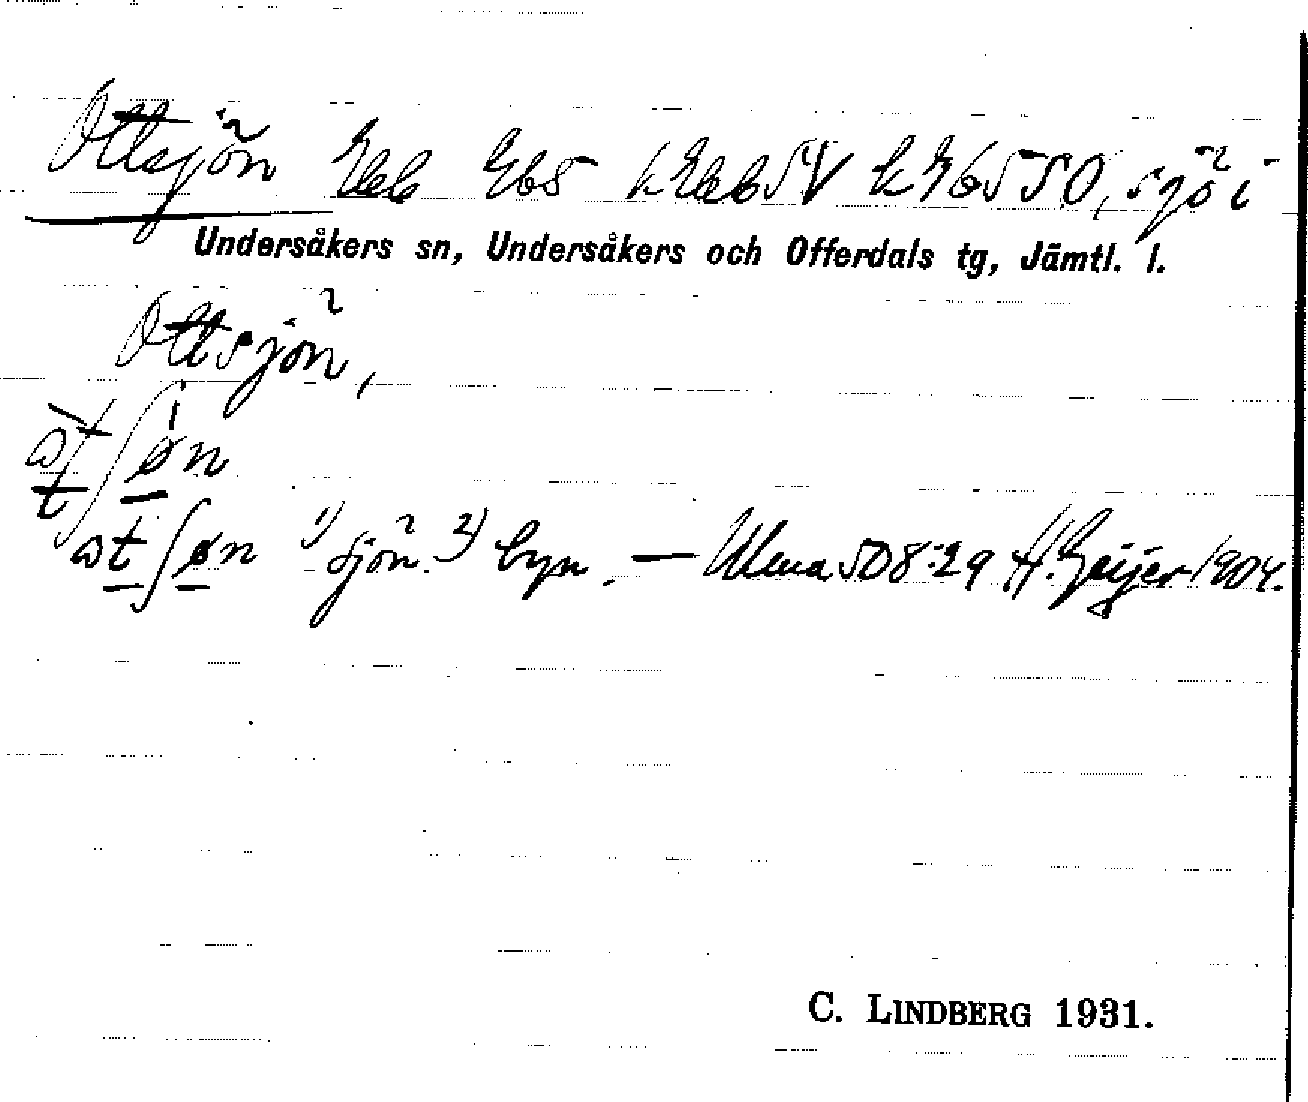 Ottsjön Ebb Eb5 k Ebb SV k Eb5 SO, sjö i
Undersåkers sn, Undersåkers och Offerdals tg, Jämtl. l.
Ottsjön,
ʃøn
ʃøn 1) sjön. 2) byn. — Ulma 508:29 H. Geijer 1904.
C. LINDBERG 1931.